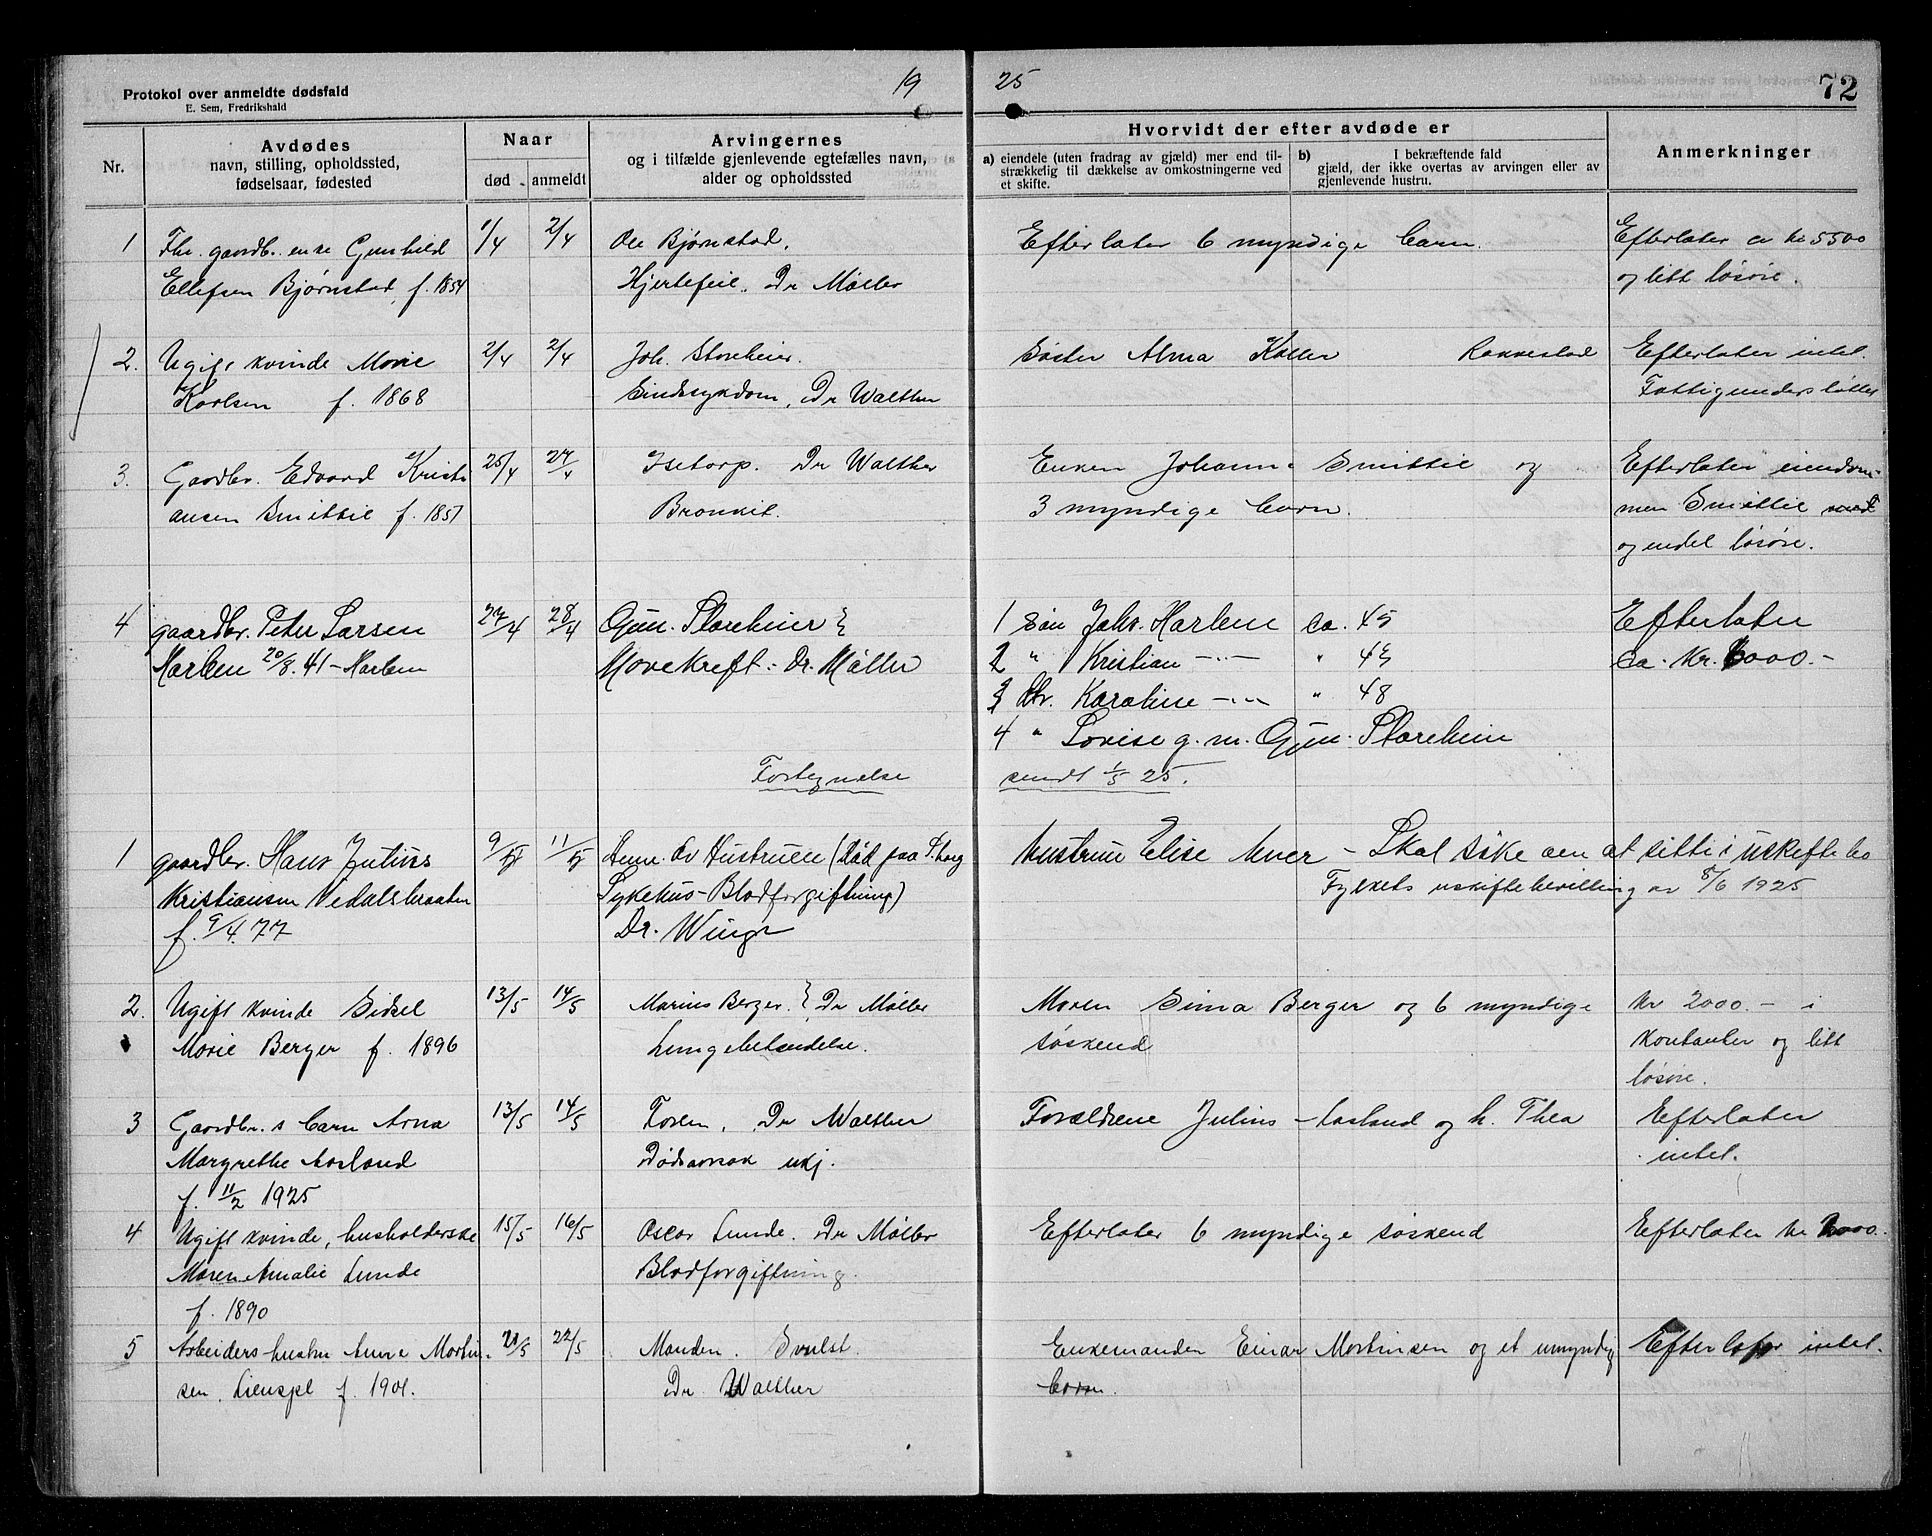 Protokol over anmeldte dødsfald
E. Sem, Fredrikshald
19 25
72
Nr.
Avdødes
navn, stilling, opholdssted,
fødselsaar, fødested
Naar
død anmeldt
Arvingernes
og i tilfælde gjenlevende egtefælles navn,
alder og opholdssted
Hvorvidt der efter avdøde er
a) eiendele (uten fradrag av gjæld) mer end til-
strækkelig til dækkelse av omkostningerne ved
et skifte.
b) I bekræftende fald
gjæld, der ikke overtas av arvingen eller av
gjenlevende hustru.
Anmerkninger
1 Fhv. gaardbr. enke Gunhild 1/4 2/4 Ole Bjørnstad, Efterlater 6 myndige barn. Efterlater ca kr 5500
Ellefsen Bjørnstad, f. 1854 Hjertefeil. Dr Møller og litt løsøre.
2. Ugift kvinde Marie 2/4 2/4 Joh. Storeheier. Søster Alma Køller Rakkestad Efterlater intet.
Karlsen f. 1868 Sindssykdom, Dr Walther Fattigunderstøttet
3. Gaardbr. Edvard Kristi 25/4 27/4 Isetorp. Dr Walther Enken Johanne Smittil og Efterlater eiendom-
ansen Smittil f. 1857 Bronkit. 3 myndige barn. men Smittil med
og endel løsøre.
4 gaardbr. Peter Larsen 27/4 28/4 Gun. Storeheier } 1 Søn Johs. Harlem ca. 45 Efterlater
Harlem 20/8.41 - Harlem Mavekreft: Dr. Møller 2 " Kristian -"- " 43 ca. kr. 6000.-
3 Dtr. Karoline -"- " 48
4 " Lovise g. m. Gun. Storeheim
Fortegnelse sendt 1/5 25.
1 gaardbr. Hans Julius 9/5 11/5 Anm. av Hustruen (død paa S.borg Hustruen Elise Huer - Skal søke om at sitte i uskiftet bo
Kristiansen Vedalsbraaten Sykehus - Blodforgiftning) Fylkets uskiftebevilling av 8/6 1925
f. 9/4.77 Dr. Winge
2. Ugift kvinde Sidsel 13/5 14/5 Marius Berger. } Dr Møller Moren Sima Berger og 6 myndige kr 2000.- i
Marie Berger f. 1896 Lungebetændelse. søskend kontanter og litt
løsøre.
3 Gaardbr.s barn Arna 13/5 14/5 Faren, Dr Walther Forældrene Julius Aasland og h. Thea Efterlater
Margrethe Aasland Dødsaarsak ukj. intet.
f. 11/2 1925
4 Ugift kvinde, husholderske 15/5 16/5 Oscar Lunde. Dr Møller Efterlater 6 myndige søskend Efterlater kr 2000.
Maren Amalie Lunde Blodforgiftning.
f. 1890
5 Arbeiders hustru Anne Martin- 21/5 22/5 Manden. Svulst. Enkemanden Einar Martinsen og et umyndig Efterlater intet.
sen, f. 1901. Dr Walther barn.